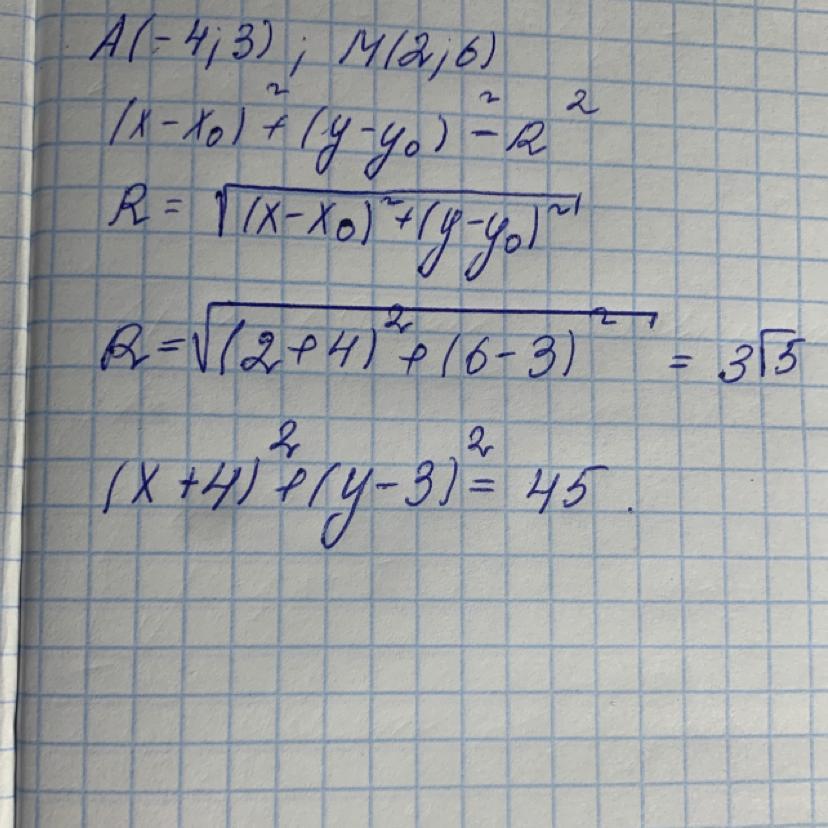 A(-4;3); M(2;6)
(x-x₀)²+(y-y₀)²-R²
R=√((x-x₀)²+(y-y₀)²)
R=√((2+4)²+(6-3)²)=3√5
(x+4)²+(y-3)²=45.